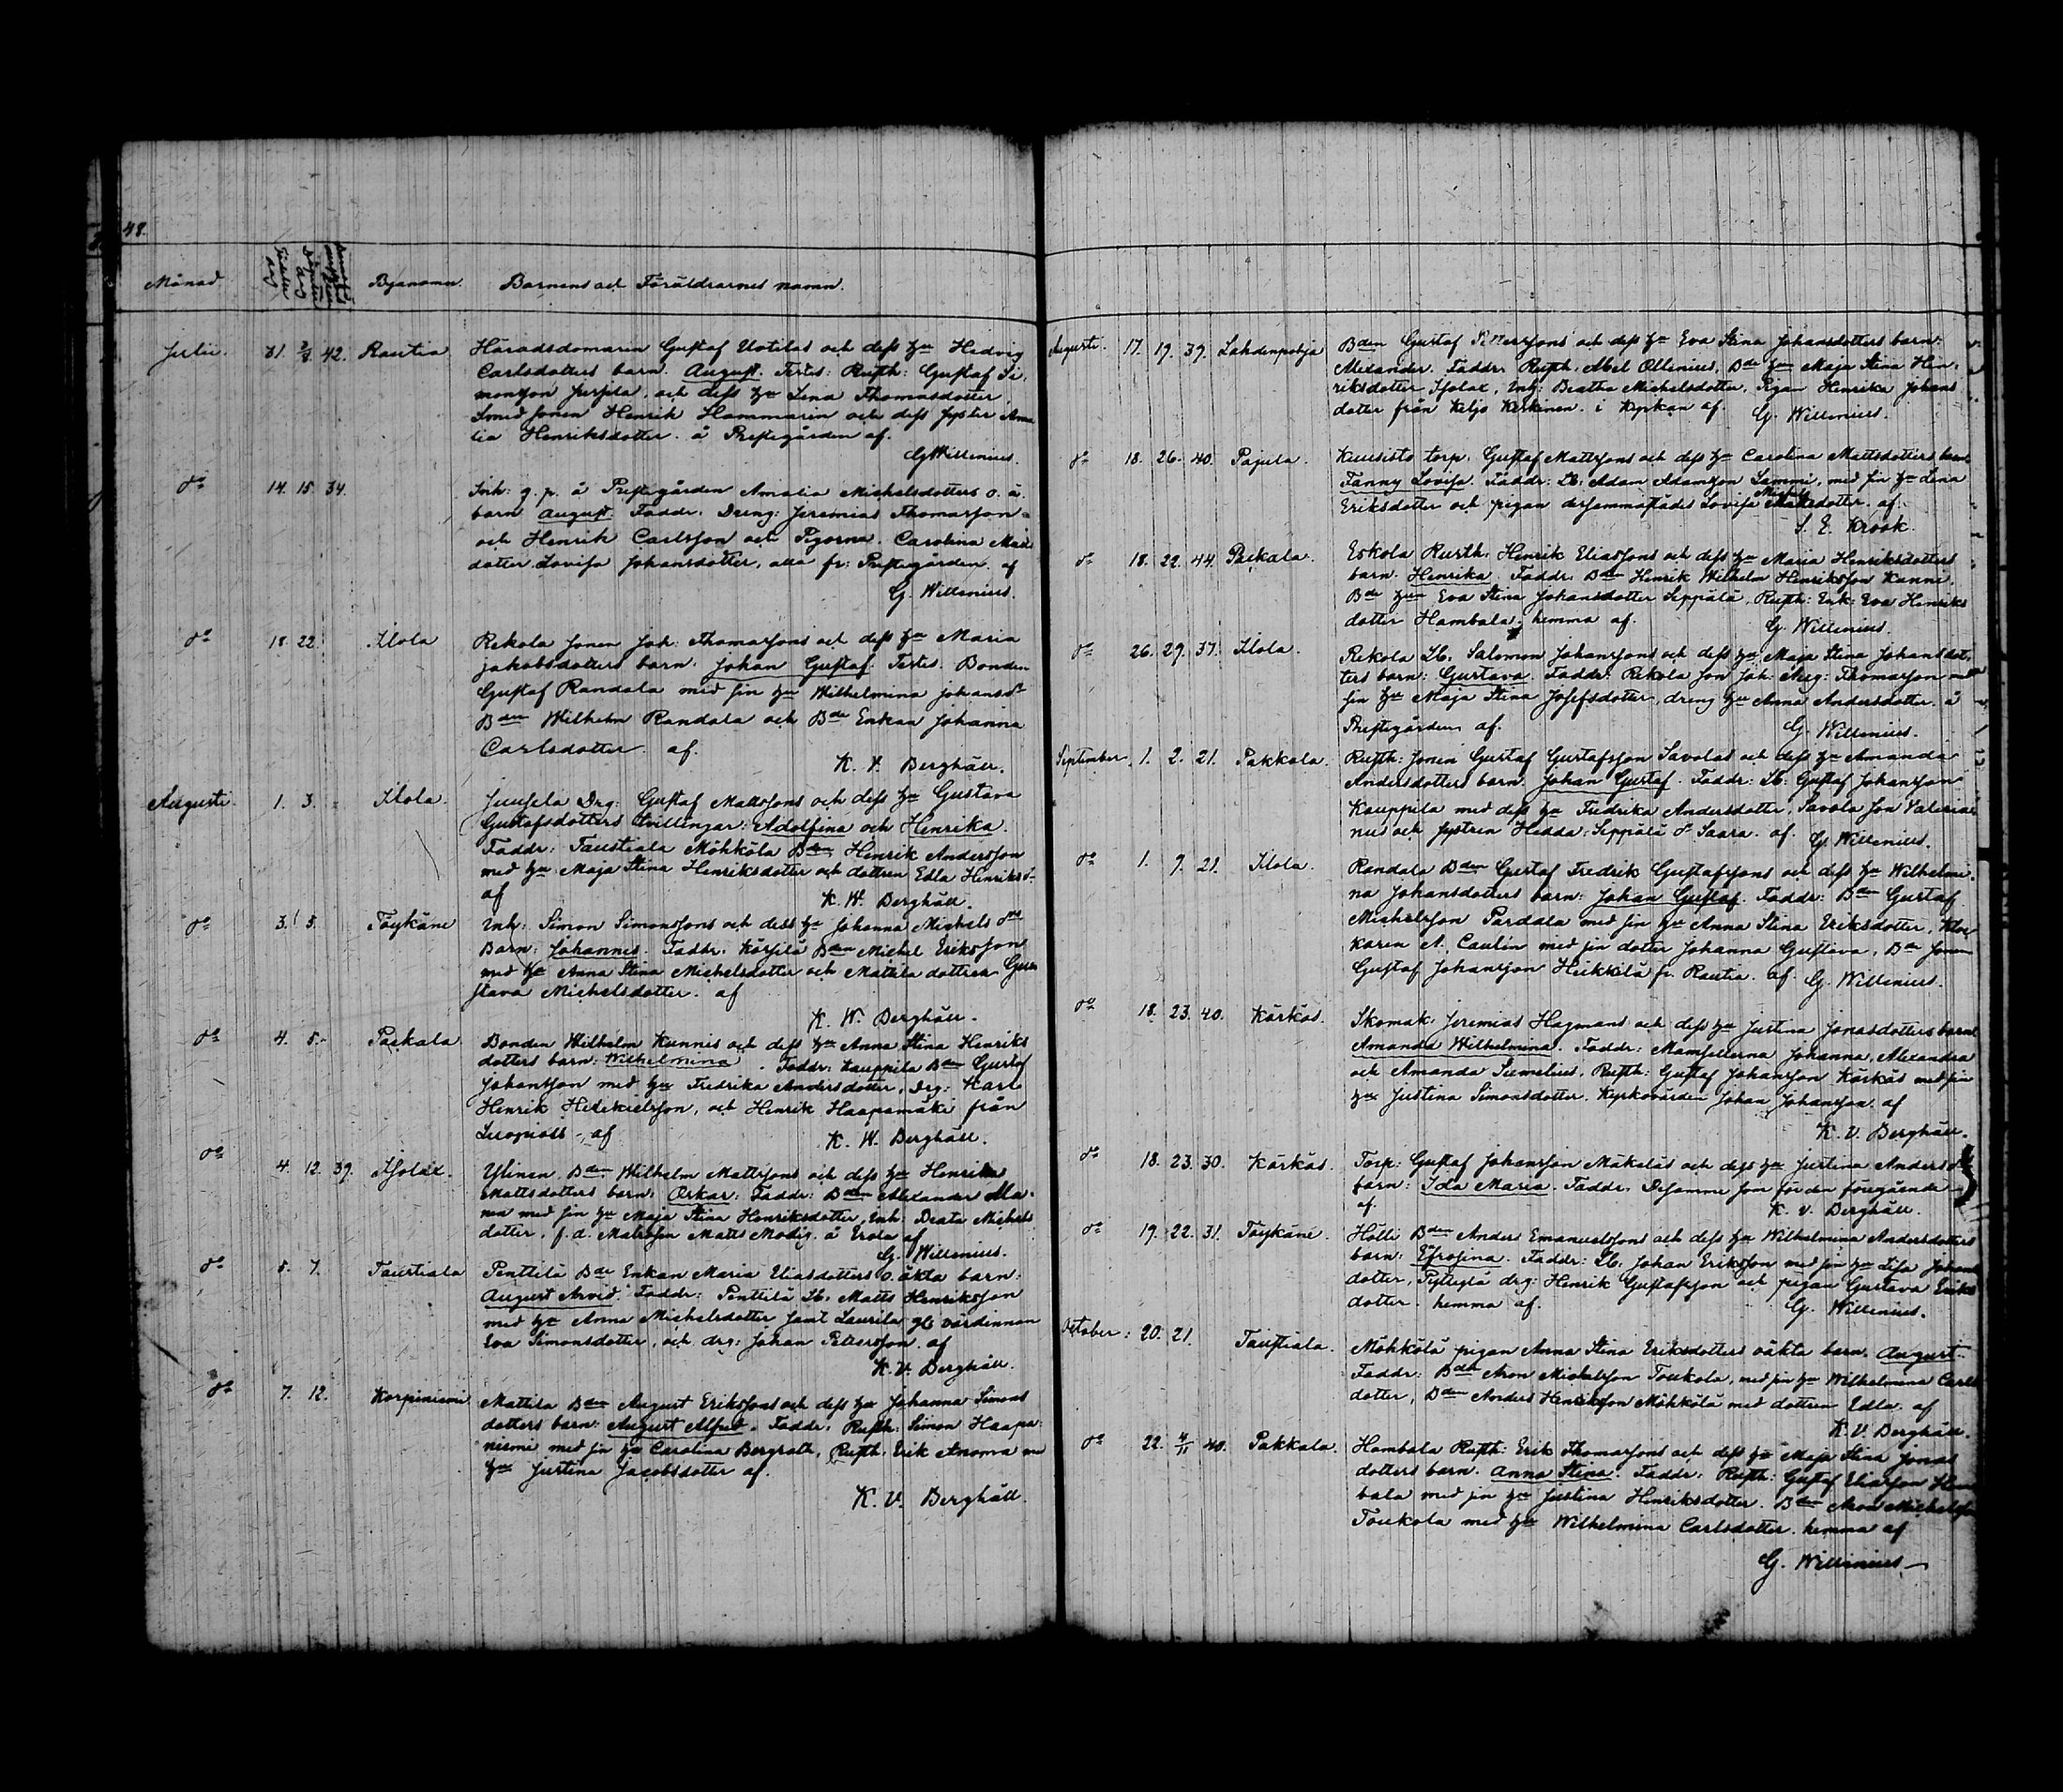 48.
Månad Födelse dag Döpelse dag Byanamn. Barnens och Föräldrarnes namn.
Julii. 31. 2/8. 42. Rautia Häradsdomaren Gustaf Uotilas och dess h:u Hedvig
Carlsdotters barn. August. Testes: Rusth: Gustaf Si-
monsson och dess h:u Lena Thomasdotter,
Smed sonen Henrik Hammarén och dess syster Ama
lia Henriksdotter. å Prestegården af.
G Willenius.
d:o 14. 15. 34. Inh: g. p. å Prestegården Amalia Michelsdotters o. ä.
barn August. Faddr. Dreng: Jeremias Thomasson
och Henrik Carlsson och Pigorna Carolina Matts
dotter Lovisa Johansdotter, alla fr: Prestegården. af
G. Willenius.
d:o 18. 22. Ilola Rekola sonen Joh: Thomassons och dess h:u Maria
Jakobsdotters barn. Johan Gustaf. Testes. Bonden
Gustaf Randala med sin h:u Wilhelmina Johansd:r
B:den Wilhelm Randala och B:de Enkan Johanna
Carlsdotter. af.
K. V. Berghäll.
Augusti 1. 3. Ilola. Juusela Drg: Gustaf Mattssons och dess h:u Gustava
Gustafsdotters tvillingar: Adolfina och Henrika.
Faddr: Taustiala Möhkölä B:den Henrik Andersson
med h:u Maja Stina Henriksdotter och dottren Edla Henriksd:r
af
K. W. Berghäll.
d:o 3. 5. Töykäne Inh: Simon Simonssons och dess h:u Johanna Michels d:rs
Barn: Johannes. Faddr. B:den Michel Eriksson
med h:u Anna Stina Michelsdotter och Mattila dottren Gu
stava Michelsdotter. af
K. W. Berghäll.
d:o 4. 5. Päkkala Bonden Wilhelm Kunnis och dess h:u Anna Stina Henriks
dotters barn: Wilhelmina. Faddr: Kauppila B:den Gustaf
Johansson med h:u Fredrika Andersdotter, Drg: Karl
Henrik Hesekielsson, och Henrik Haapamäki från
Luopiois. af
K. W. Berghäll.
d:o 4. 12. 39. Isolax. Ylinen B:den Wilhelm Mattssons och dess h:u Henrika
Mattsdotters barn: Oskar. Faddr: B:den Alexander Ala-
nen med sin h:u Maja Stina Henriksdotter, Inh: Beata Michels
dotter, f.d. Matrosen Matts Modig. å Erola af
G. Willenius.
d:o 5. 7. Taustiala Penttilä B:de Enkan Maria Eliasdotters o. äkta barn:
August Arvid. Faddr: Penttilä Lb. Matts Henriksson
med h:u Anna Michelsdotter samt Laurila gl. värdinnan
Eva Simonsdotter, och drg: Johan Pettersson. af
K. V. Berghäll.
d:o 7. 12. Korpiniemi Mattila B:den August Erikssons och dess h:u Johanna Simons
dotters barn: August Alfred. Faddr. Rusth: Simon Haapa-
niemi med sin h:u Carolina Bergroth, Rusth: Erik Anoma med
h:u Justina Jacobsdotter af.
K. V. Berghäll.
Augusti. 17. 19. 39. Lahdenpohja B:den Gustaf Petterssons och dess h:u Eva Stina Johansdotters barn:
Alexander. Faddr. Rusth. Abel Ollenius, B:de h:u Maja Stina Hen-
riksdotter Isolax, Inh: Beatha Michelsdotter, Pigan Henrika Johans
dotter från Keljo Keskinen. i Kyrkan af. G. Willenius.
d:o 18. 26. 40. Pajula. Kuusisto torp: Gustaf Mattssons och dess h:u Carolina Mattsdotters barn.
Fanny Lovisa. Faddr: Lb: Adam Adamsson Sammi, med sin h:u Lena
Eriksdotter och pigan dersammastädes Lovisa Michelsdotter. af.
S. E. Krook.
d:o 18. 22. 44. Päkkala. Eskola Rusth. Henrik Eliassons och dess h:u Maria Henriksdotters
barn. Henrika. Faddr. B:den Henrik Wilhelm Henriksson Kanni.
B:de h:un Eva Stina Johansdotter Seppälä, Rusth: Enk: Eva Henriks
dotter Hambala. hemma af. G. Willenius.
d:o 26. 29. 37. Ilola. Rekola Lb. Salomon Johanssons och dess h:u Maja Stina Johansdot-
ters barn: Gustava. Faddr. Rekola son Joh: Aug: Thomasson med
sin h:u Maja Stina Josefsdotter, dreng h:u Anna Andersdotter. å
Prestegården af. G. Willenius.
September. 1. 2. 21. Pakkala. Rusth: sonen Gustaf Gustafsson Savolas och dess h:u Amanda
Andersdotters barn. Johan Gustaf. Faddr: Lb: Gustaf Johansson
Kauppila med dess h:u Fredrika Andersdotter, Savola son Valeria-
nus och systren Hedda: Seppälä d:r Saara. af. G. Willenius.
d:o 1. 9. 21. Ilola. Randala B:den Gustaf Fredrik Gustafssons och dess h:u Wilhelmi-
na Johansdotters barn: Johan Gustaf. Faddr: B:den Gustaf
Michelsson Pardala med sin h:u Anna Stina Eriksdotter, Kloc
karen A. Caulin med sin dotter Johanna Gustava, B:de sonen
Gustaf Johansson Heikkilä fr. Rautia. af G. Willenius.
d:o 18. 23. 40. Kärkäs. Skomak: Jeremias Hagmans och dess h:u Justina Jonasdotters barn:
Amanda Wilhelmina. Faddr: Mamsellerna Johanna, Alexandra
och Amanda Sumelius, Rusth: Gustaf Johansson Kärkäs med sin
h:u Justina Simonsdotter. Kyrkovärden Johan Johansson. af
K. V. Berghäll.
d:o 18. 23. 30. Kärkäs. Torp: Gustaf Johansson Mäkeläs och dess h:u Justina Anders d:rs
barn: Ida Maria. Faddr. Desamme som för den föregående
af. K. V. Berghäll.
d:o 19. 22. 31. Töykäne. Hölli B:den Anders Emanuelssons och dess h:u Wilhelmina Andersdotters
barn: Efrosina. Faddr: Lb. Johan Eriksson med sin h:u Lisa Johans
dotter, drg: Henrik Gustafsson och pigan Gustava Eriks
dotter. hemma af. G. Willenius.
October: 20. 21. Taustiala. Möhkölä pigan Anna Stina Eriksdotters oäkta barn. August.
Faddr: B:den Aron Michelsson Toukola, med sin h:u Wilhelmina Carls
dotter, B:den Anders Henriksson Möhkölä med dottren Edla. af
K. V. Berghäll.
d:o 22. 4/11 40. Pakkala. Hambala Rusth: Erik Thomassons och dess h:u Maja Stina Jonas
dotters barn. Anna Stina. Faddr: Rusth: Gustaf Eliasson Ham
bala med sin h:u Justina Henriksdotter. B:den Aron Michelsson
Toukola med h:u Wilhelmina Carlsdotter. hemma af
G. Willenius.